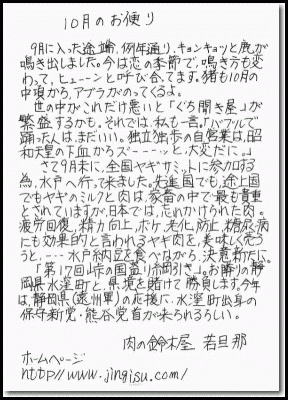 10月のお便り
9月に入った途端、例年通り、キョンキョッと鹿が
鳴き出しました。今は恋の季節で、鳴き方も変
わって、ヒューーンと呼び合ってます。猪も10月の
中頃から、アブラがのってくるよ。
世の中がこれだけ悪いと「ぐち聞き屋」が
繁盛するかも。それでは、私も一言。「バブルで
踊った人は、まだいい。独立独歩の自営業は、昭
和天皇の下血からズーーーーッと、大変だに。」
さて9月末に、全国ヤギサミットに参加する
為、水戸へ行って来ました。先進国でも、途上国
でもヤギのミルクと肉は、家畜の中で最も貴重
とされていますが、日本では、忘れかけられた肉。
疲労回復、精力向上、ボケ、老化防止、糖尿病
にも効果的と言われるヤギ肉を、美味しく売ろ
うと、---水戸納豆を食べながら、決意新たに。
「第17回峠の国盗り綱引き」。お隣りの静
岡県水窪町と、県境を賭けて勝負します。今年
は、静岡県(遠州軍)の応援に、水窪町出身の
保守新党・熊谷党首が来られるらしい。
肉の鈴木屋 若旦那
ホームページ
http//www.jingisu.com/